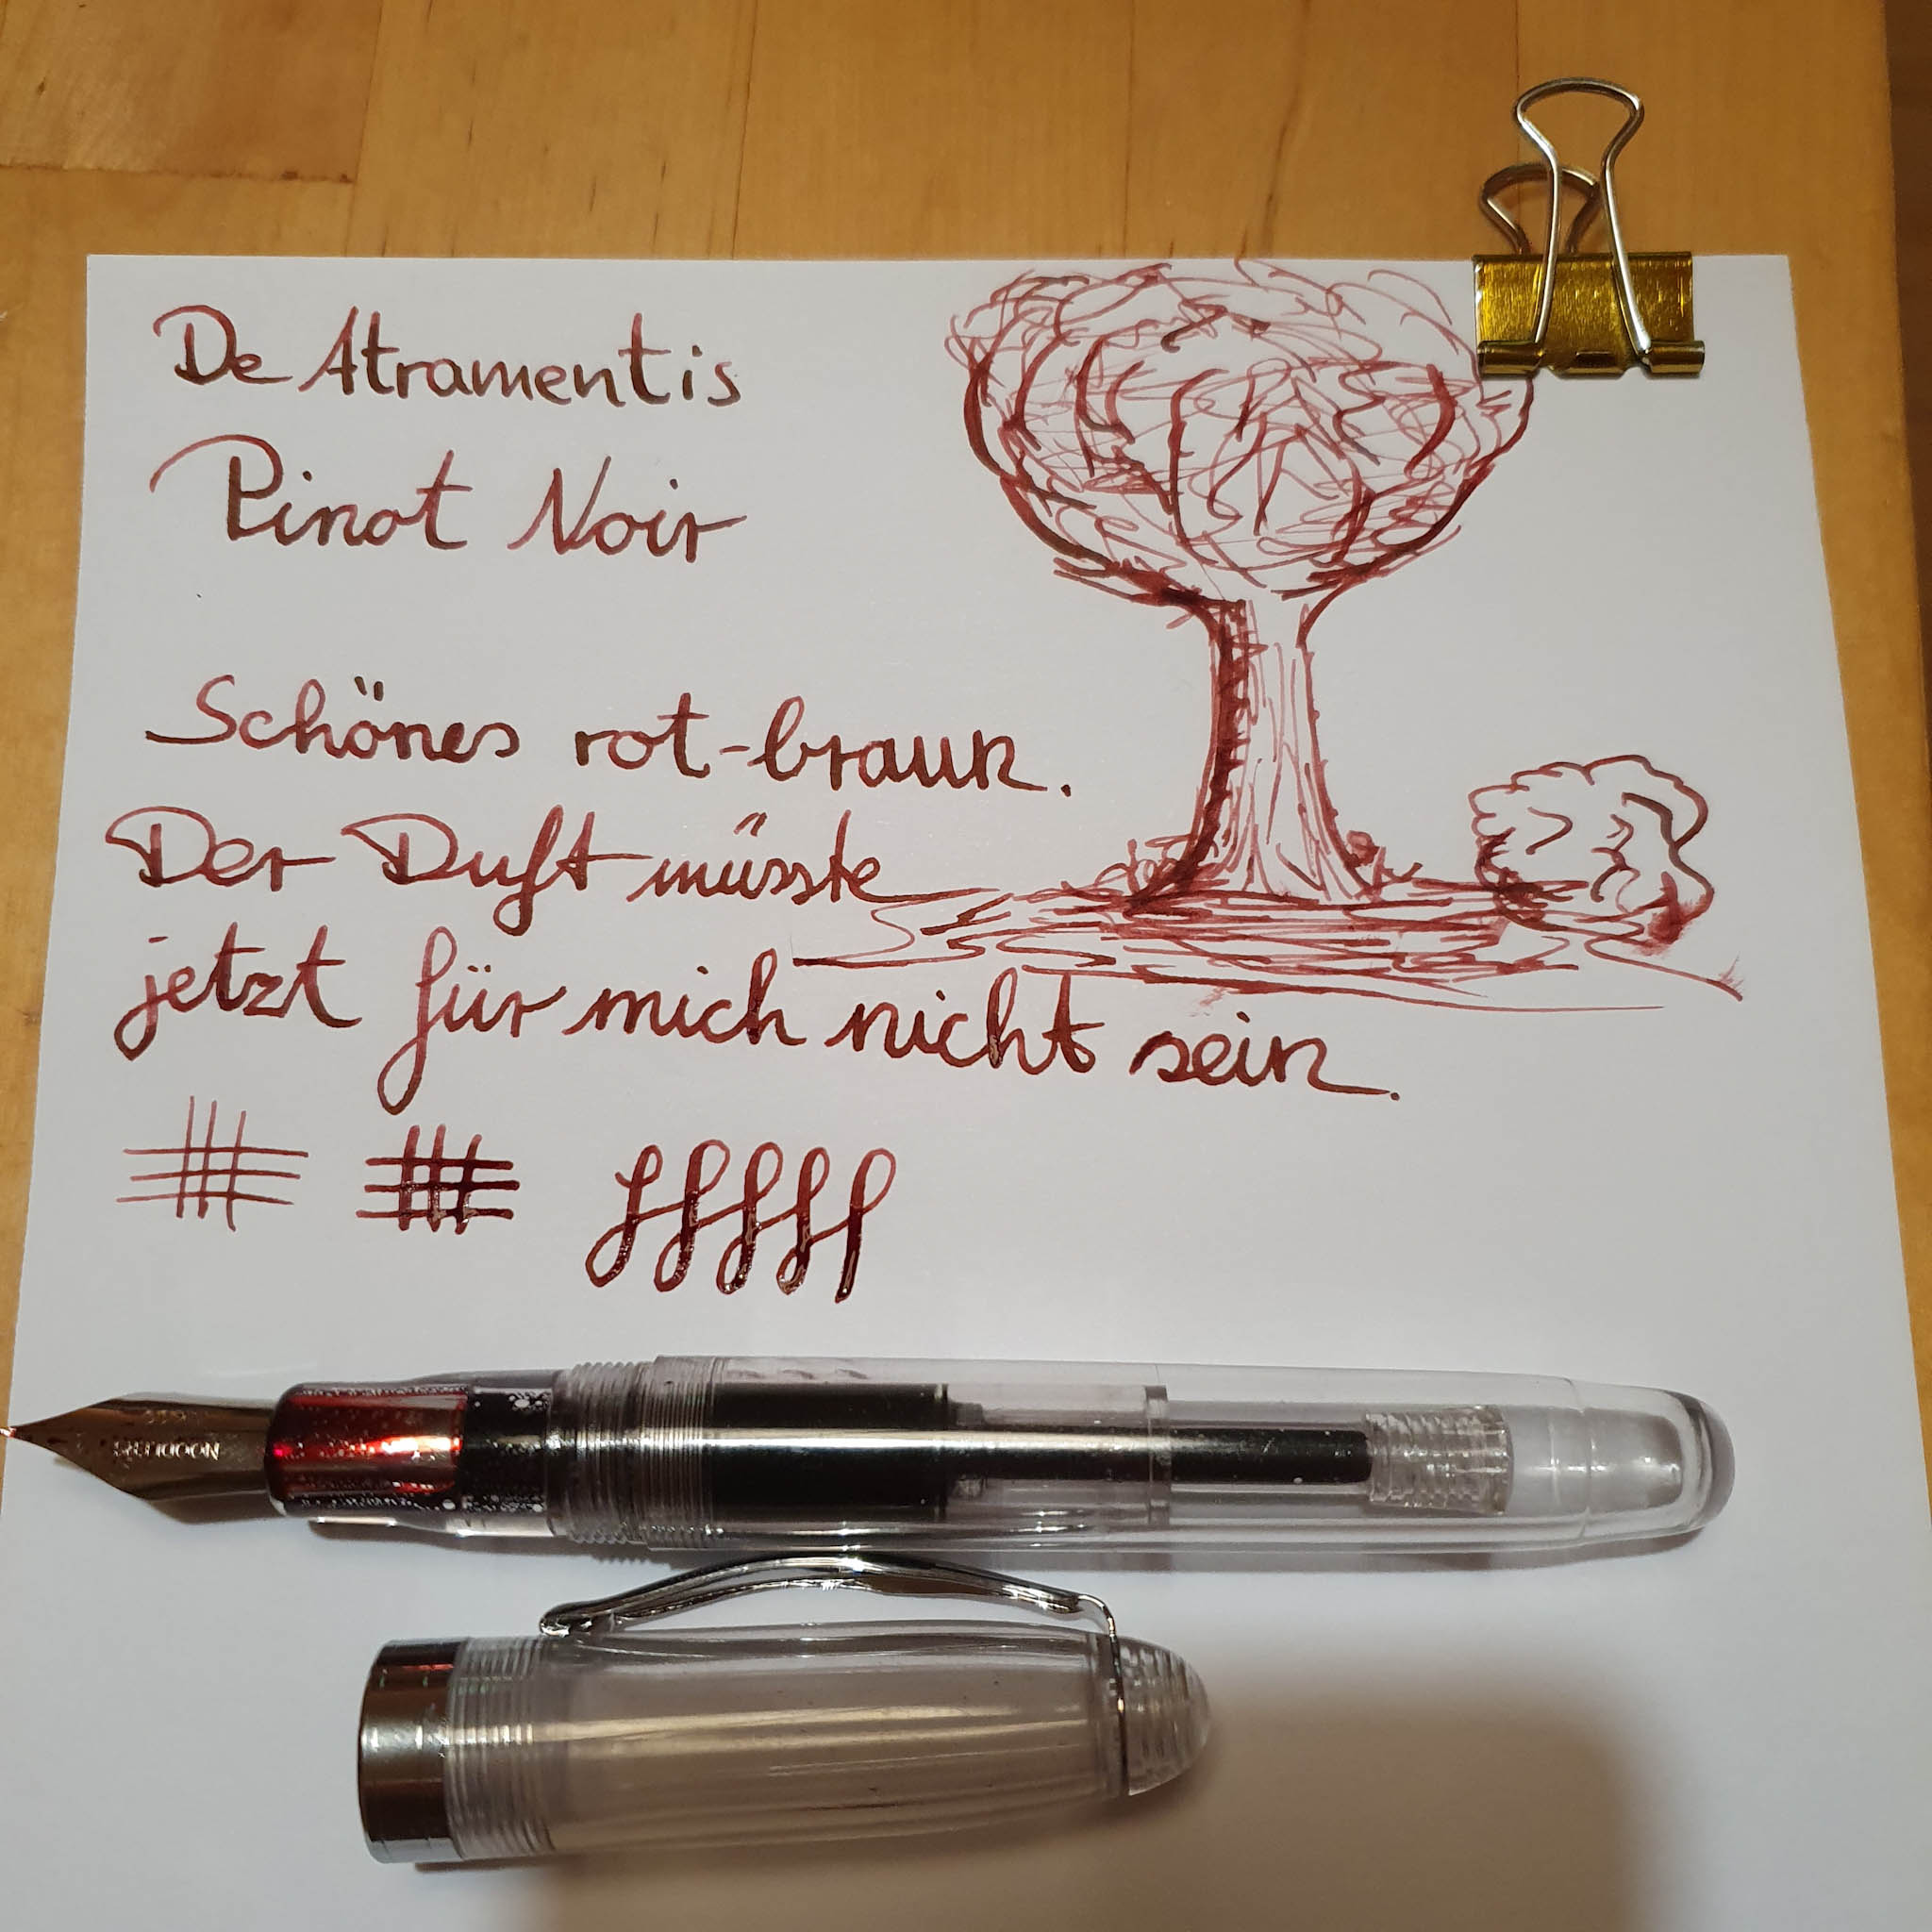 De Atramentis
Pinot Noir
Schönes rot-braun.
Der Duft müsste
jetzt für mich nicht sein.
NOODLER'S